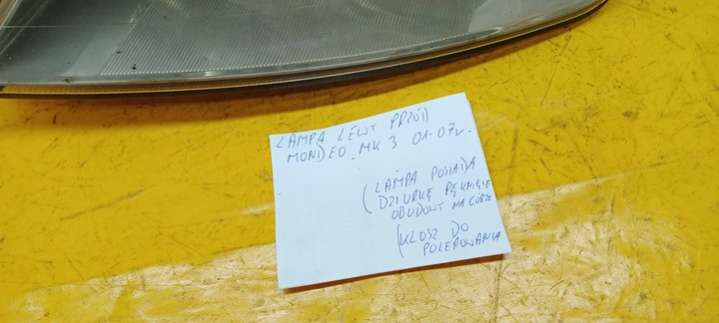 LAMPA LEWY PRZÓD
MONDEO MK 3 01-07r.
(LAMPA POSIADA
DZIURKĘ PĘKNIĘCIE
OBUDOWY NA GÓRZE
(KLOSZ DO
POLEROWANIA